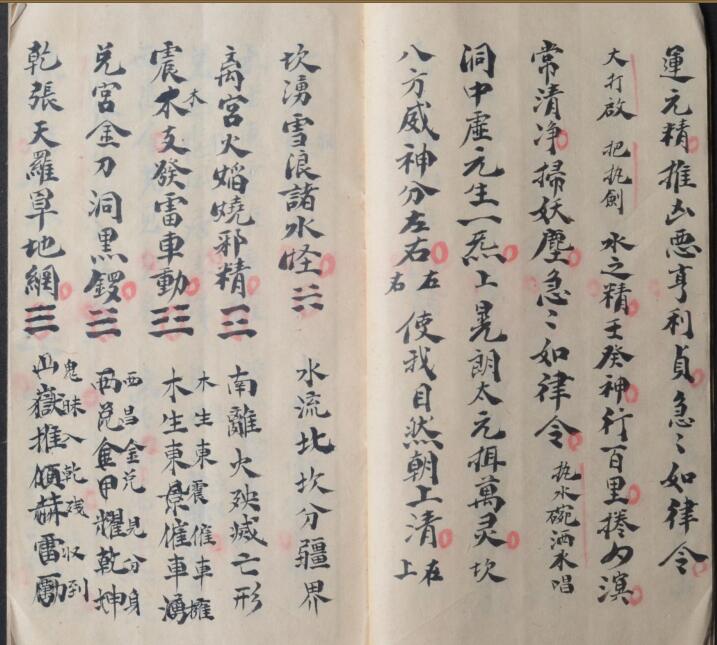 運元精推凶惡亨利貞急〻如律令
大打啟 把执劍 水之精壬癸神行百里捲四溟
常清净掃妖塵急〻如律令 执水碗洒水唱
洞中虛元生一炁上晃朗太元揖萬灵坎
八方威神分左右左右 使我目然朝上清右上
坎湧雪浪諸水怪 水流北坎分疆界
离宮火焰燒邪精 南離火殃滅亡形
震木支發雷車動 木 木生東震催車擁 木生東景催車湧
兑宮金刀洞黑鍐 西昌金兑見分身 西兑金甲耀乾坤
乾張天羅草地網 鬼昧入乾残収到 山嶽推傾赫雷勵